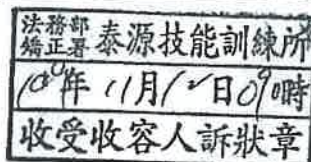 法務部
矯正署
泰源技能訓練所
100年11月12日09時
收受收容人訴狀章